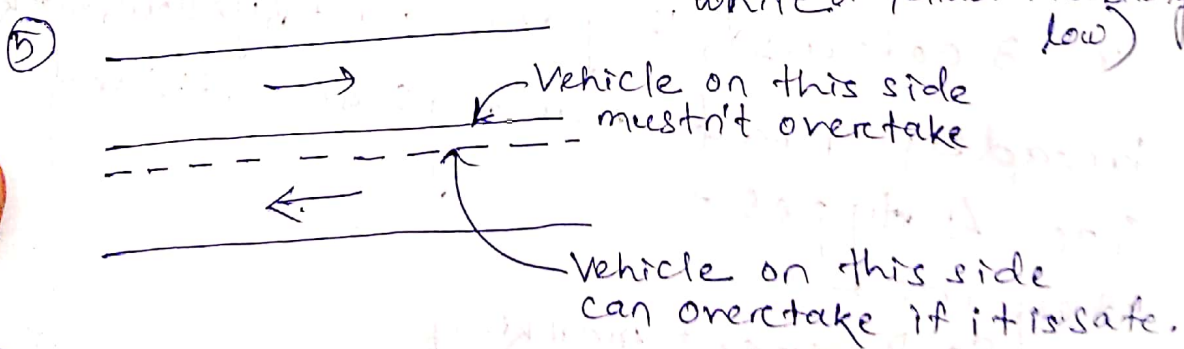 low)
⑤
Vehicle on this side
mustn't overtake
Vehicle on this side
can overtake if it is safe.